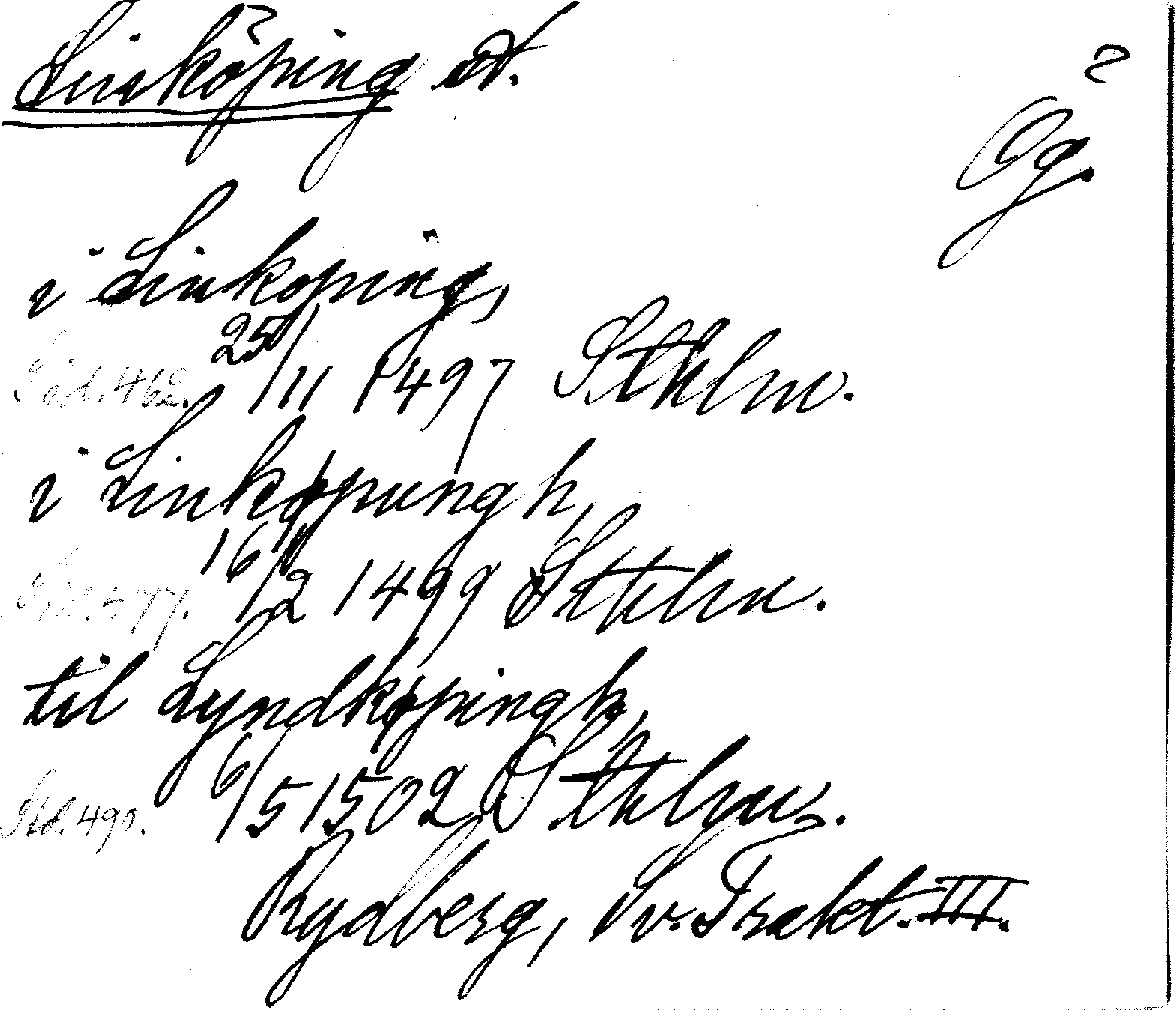 Linköping st.
Ög.
i Linkoping,
Sid. 462. 25/11 1497 Sthlm.
i Linkøpungh,
16/2 1499 Sthlm.
til Lyndkøpingh,
Sid. 490. 6/5 1502 Sthlm.
Rydberg, Sv. Trakt. III.